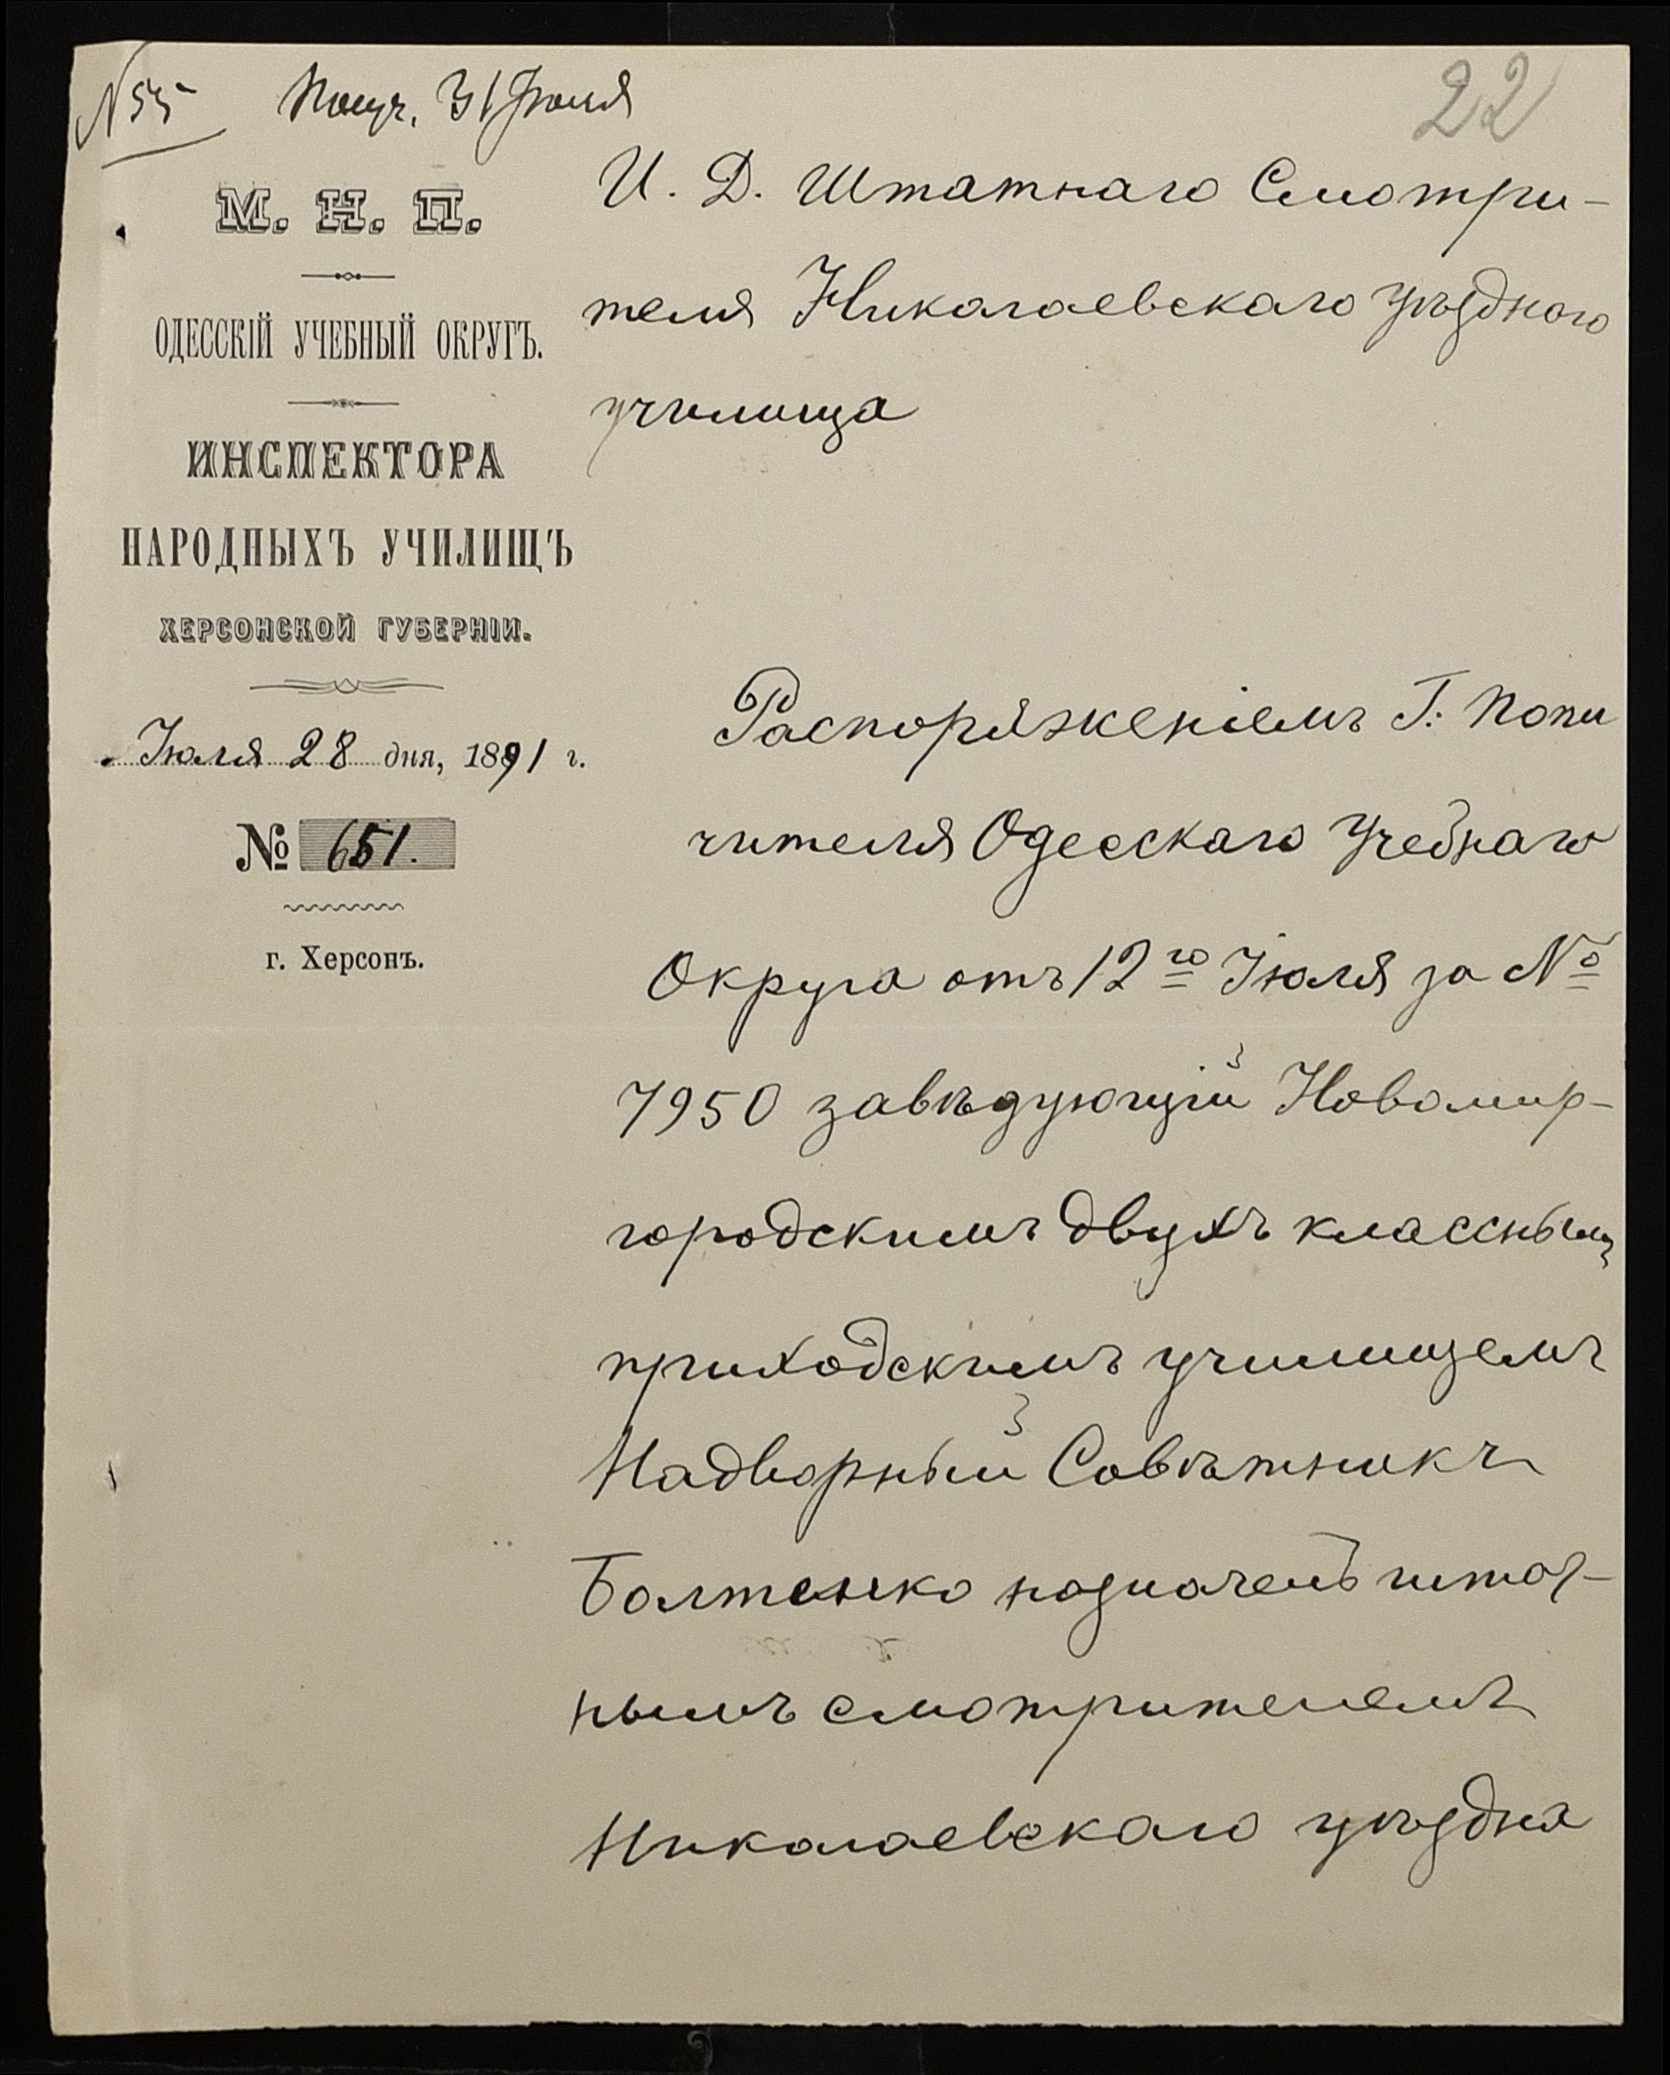 N 55 Получ. 31 Іюля
22
М. Н. П.
ОДЕССКІЙ УЧЕБНЫЙ ОКРУГЪ.
ИНСПЕКТОРА
НАРОДНЫХЪ УЧИЛИЩЪ
ХЕРСОНСКОЙ ГУБЕРНІИ.
Іюля 28 дня, 1891 г.
№ 651.
г. Херсонъ.
И. Д. Штатнаго Смотри-
теля Николаевскаго уѣзднаго
училища
Распоряженіемъ Г. Попе
чителя Одесскаго Учебнаго
Округа отъ 12го Іюля за №
7950 завѣдующій Новомир-
городскимъ двухъ класснымъ
приходскимъ училищемъ
Надворный Совѣтникъ
Болтенко назначенъ штат-
нымъ смотрителемъ
Николаевскаго уѣздна